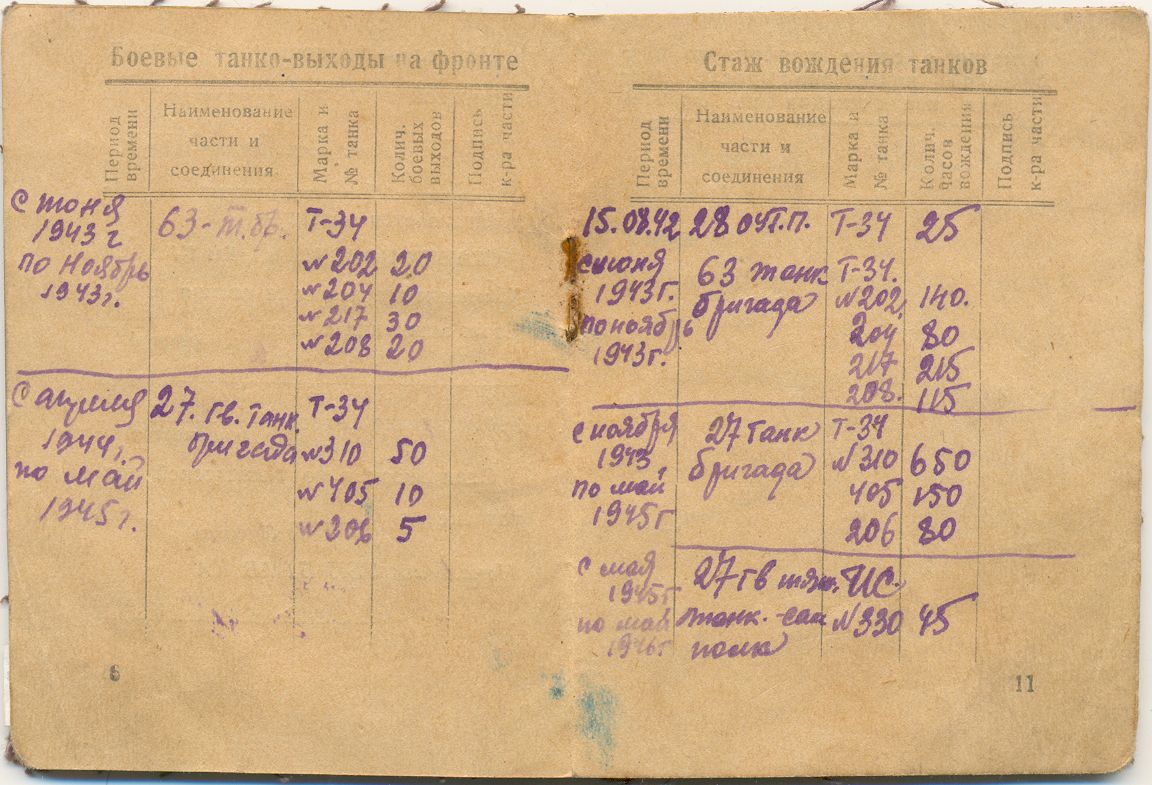 Боевые танко-выходы на фронте
Период времени
Наименование
части и
соединения
Марка и
№ танка
Колич.
боевых
выходов
Подпись
к-ра части
с июня 63-т.бр. Т-34
1943 г
по ноябрь №202 20
1943г. №204 10
№217 30
№208 20
с апреля 27. гв. танк. Т-34
1944г. бригада №310 50
по май №405 10
1945г. №206 5
Стаж вождения танков
Период
времени
Наименование
части и
соединения
Марка и
№ танка
Колич.
часов
вождения
Подпись
к-ра части
15.08.42 28 оутп. Т-34 25
с июня 63 танк Т-34.
1943г. бригада №202 140.
по ноябрь 204 80
1943г. 217 215
208. 115
с ноября 27 танк Т-34
1943г бригада №310 650
по май 405 150
1945г 206 80
с мая 27 гв тяж. ИС.
1945г
по май танк.-сам №330 45
1946г полк
11